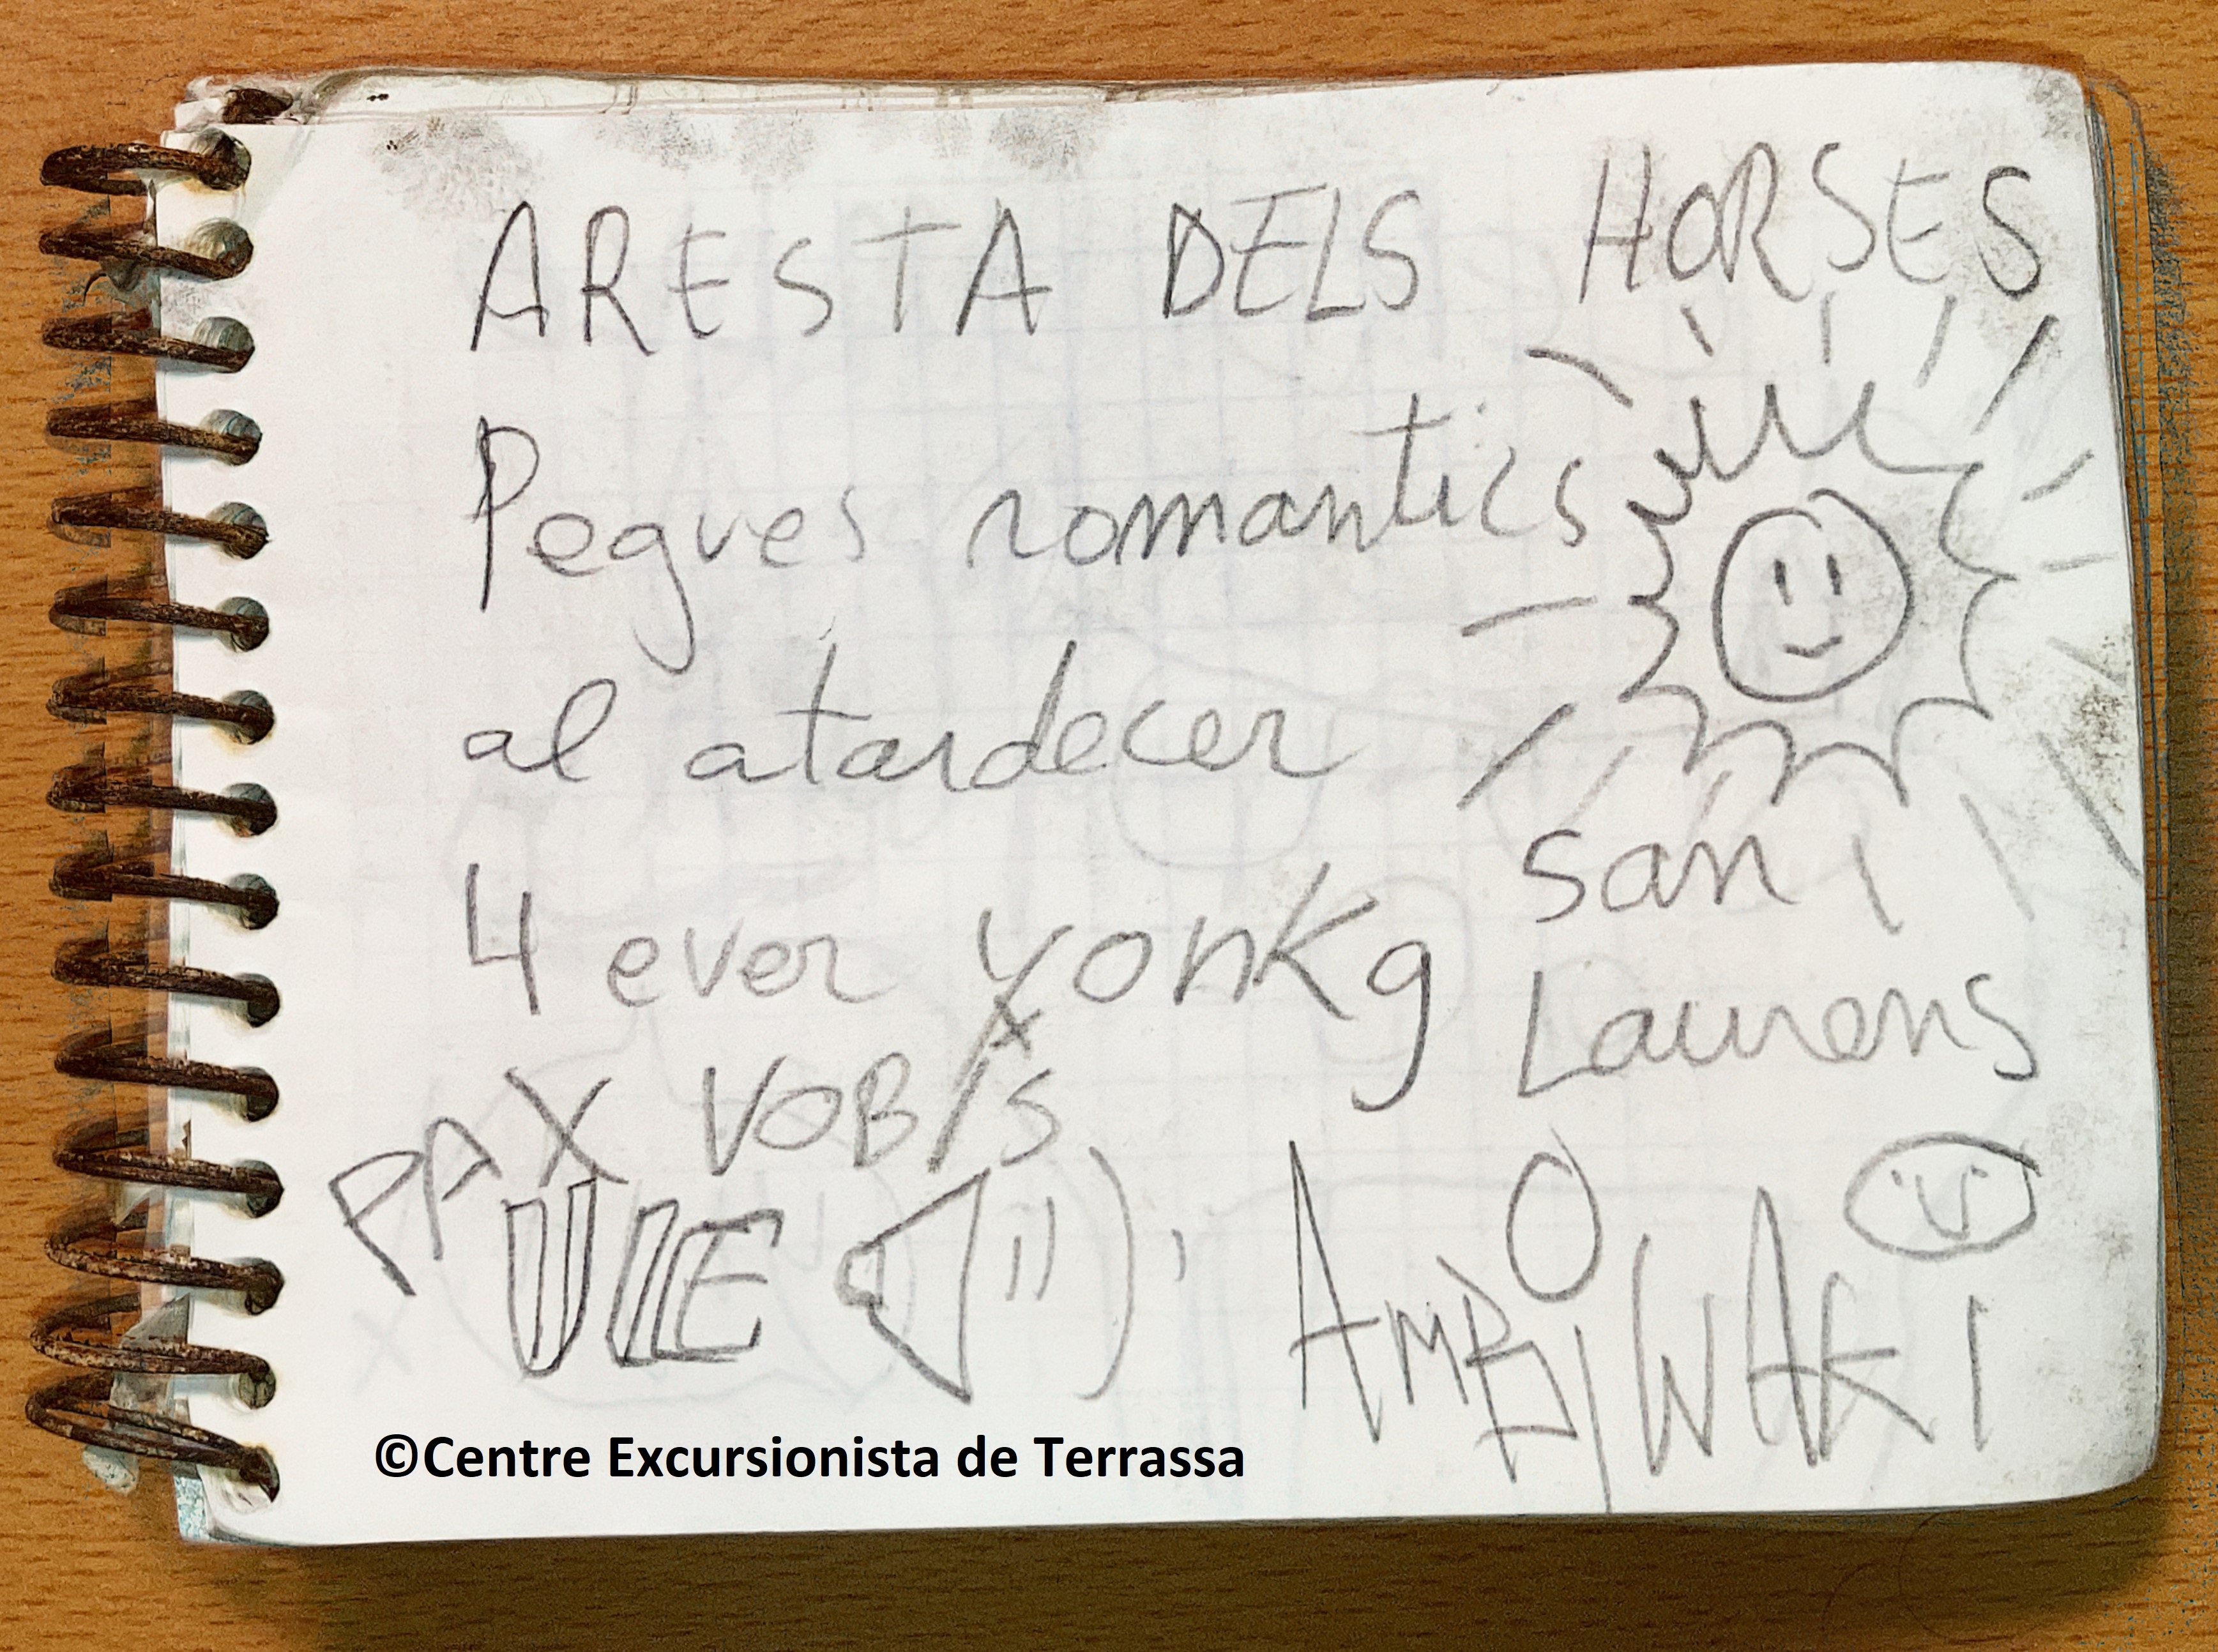 ARESTA DELS HORSES
Pegues romantics
al atardecer
4 ever yonkg
san
Laurens
PAX VOBIS
AMBIWAKI
©Centre Excursionista de Terrassa